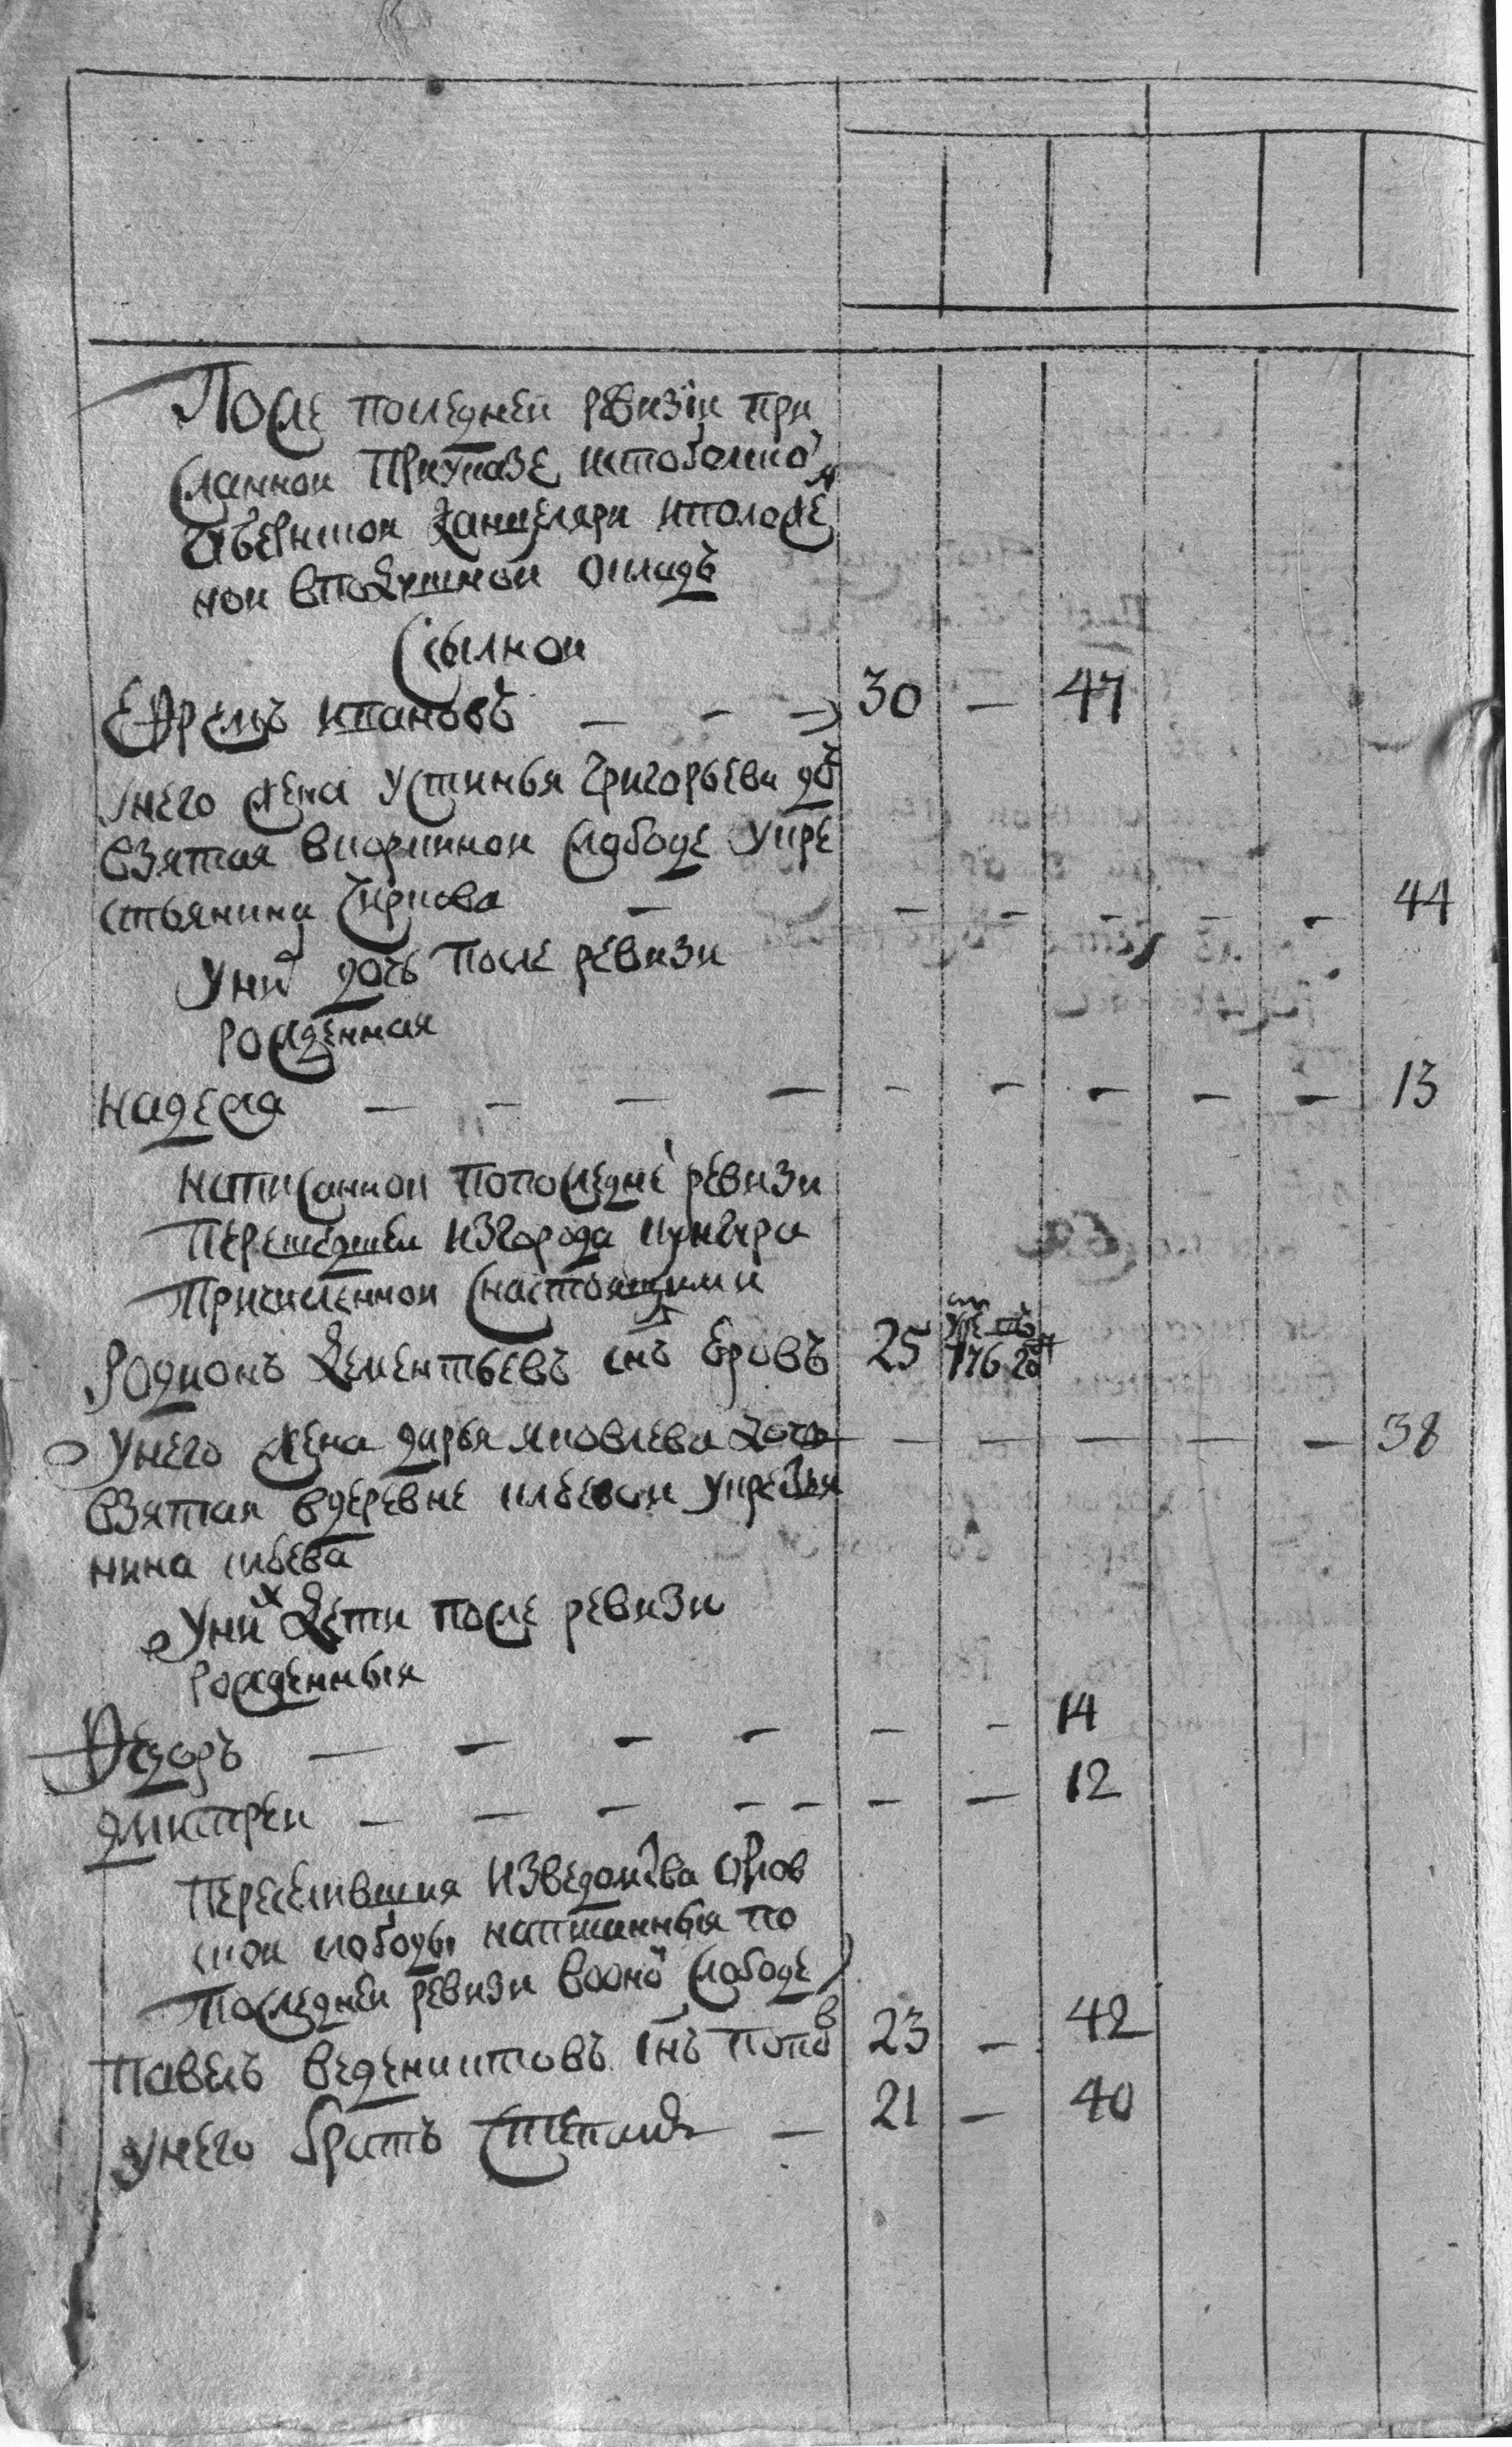 После последней ревизіи при
сланной приуказе истобольско
губернской канцеляри иположе
ной вподушной окладъ
Ссыльной
Ефремъ ивановъ — — — 30 — 47
унего жена устинья григорьева дочь
взятая вкоркинной слободе укре
стьянина чиркова — — — — — — 44
уних дочь после ревизи
рожденная
надежда — — — — — — — — — 13
написанной попоследне ревизи
перешедшей изгорода кунгура
причисленной снастоящими
Родионъ дементьевъ снъ 25
унего жена дарья яковлева дочь — — — — — 38
взятая вдеревне укрестья
нина
уних дети после ревизи
рожденныя
Федоръ — — — — — — 14
дмитреи — — — — — — — 12
переселившия изведомства
ской слободы написанныя по
последней ревизи воной слободе
павелъ веденихтовъ снъ попов 23 — 42
унего братъ степанъ — 21 — 40